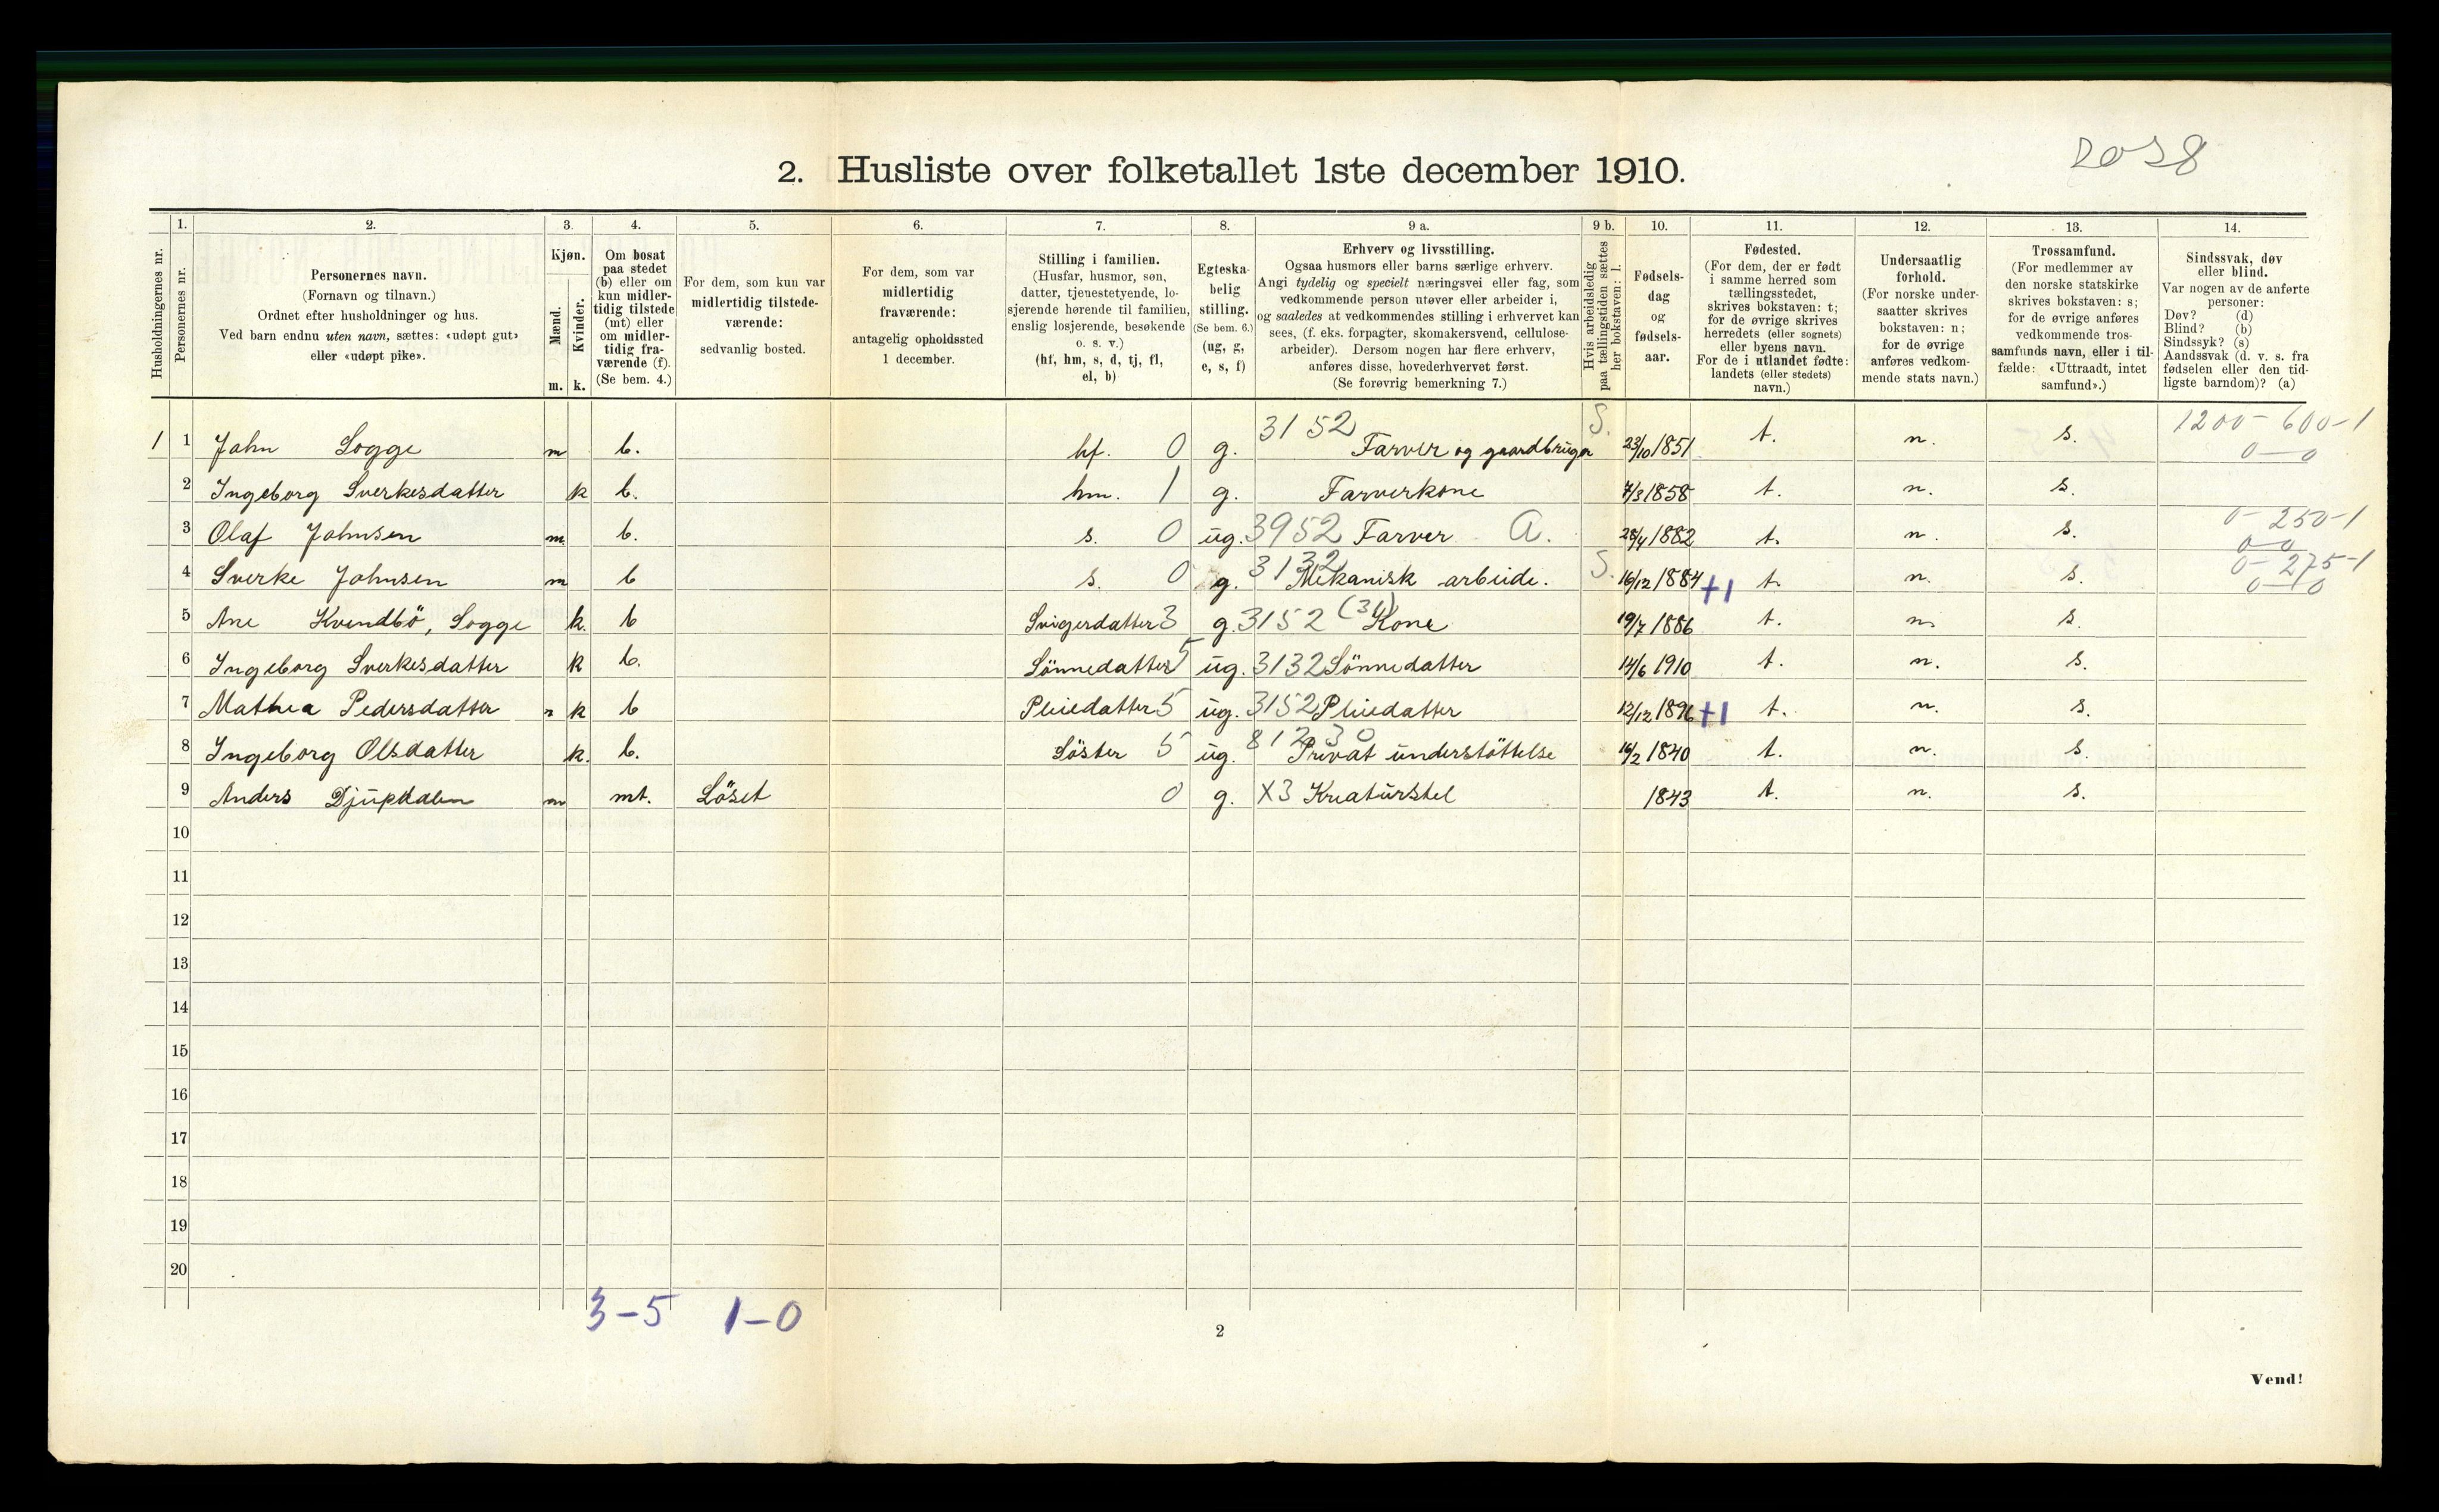 2058
2. Husliste over folketallet 1ste december 1910.
1. 2. 3. 4. 5. 6. 7. 8. 9 a. 9 b. 10. 11. 12. 13. 14.
Husholdningernes nr.
Personernes nr.
Personernes navn.
(Fornavn og tilnavn.)
Ordnet efter husholdninger og hus.
Ved barn endnu uten navn, sættes: «udøpt gut»
eller «udøpt pike».
Kjøn.
Mænd.
Kvinder.
m. k.
Om bosat
paa stedet
(b) eller om
kun midler-
tidig tilstede
(mt) eller
om midler-
tidig fra-
værende (f).
(Se bem. 4.)
For dem, som kun var
midlertidig tilstede-
værende:
sedvanlig bosted.
For dem, som var
midlertidig
fraværende:
antagelig opholdssted
1 december.
Stilling i familien.
(Husfar, husmor, søn,
datter, tjenestetyende, lo-
sjerende hørende til familien,
enslig losjerende, besøkende
o. s. v.)
(hf, hm, s, d, tj, fl,
el, b)
Egteska-
belig
stilling.
(Se bem. 6.)
(ug, g,
e, s, f)
Erhverv og livsstilling.
Ogsaa husmors eller barns særlige erhverv.
Angi tydelig og specielt næringsvei eller fag, som
vedkommende person utøver eller arbeider i,
og saaledes at vedkommendes stilling i erhvervet kan
sees, (f. eks. forpagter, skomakersvend, cellulose-
arbeider). Dersom nogen har flere erhverv,
anføres disse, hovederhvervet først.
(Se forøvrig bemerkning 7.)
Hvis arbeidsledig
paa tællingstiden sættes
her bokstaven: l.
Fødsels-
dag
og
fødsels-
aar.
Fødested.
(For dem, der er født
i samme herred som
tællingsstedet,
skrives bokstaven: t;
for de øvrige skrives
herredets (eller sognets)
eller byens navn.
For de i utlandet fødte:
landets (eller stedets)
navn.)
Undersaatlig
forhold.
(For norske under-
saatter skrives
bokstaven: n;
for de øvrige
anføres vedkom-
mende stats navn.)
Trossamfund.
(For medlemmer av
den norske statskirke
skrives bokstaven: s;
for de øvrige anføres
vedkommende tros-
samfunds navn, eller i til-
fælde: «Uttraadt, intet
samfund».)
Sindssvak, døv
eller blind.
Var nogen av de anførte
personer:
Døv? (d)
Blind? (b)
Sindssyk? (s)
Aandssvak (d. v. s. fra
fødselen eller den tid-
ligste barndom)? (a)
1 1 John Sogge m b. hf. 0 g. 3152 Farver og gaardbruger S. 23/10 1851 t. n. s. 1200-600-1 0-0
2 Ingeborg Sverkesdatter k b. hm. 1 g. Farverkone 7/3 1858 t. n. s.
3 Olaf Johnsen m b. s. 0 ug. 3952 Farver A. 28/4 1882 t. n. s. 0-250-1 0-0
4 Sverke Johnsen m b s. 0 g. 3132 Mekanisk arbeide. S. 16/12 1884 +1 t. n. s. 0-275-1 0-0
5 Ane Kvendbö, Sogge k. b Svigerdatter 3 g. 3152 (31) Kone 19/7 1886 t. n. s.
6 Ingeborg Sverkesdatter k b. Sönnedatter 5 ug. 3132 Sönnedatter 14/6 1910 t. n. s.
7 Mathea Pedersdatter k b Pleiedatter 5 ug. 3152 Pleiedatter 12/12 1896 +1 t. n. s.
8 Ingeborg Olsdatter k. b. Söster 5 ug. 81230 Privat understöttelse 16/2 1840 t. n. s.
9 Anders Djupdalen m mt. Löset 0 g. X3 Kreaturstel 1843 t. n. s.
10
11
12
13
14
15
16
17
18
19
20
3-5 1-0
2
Vend!